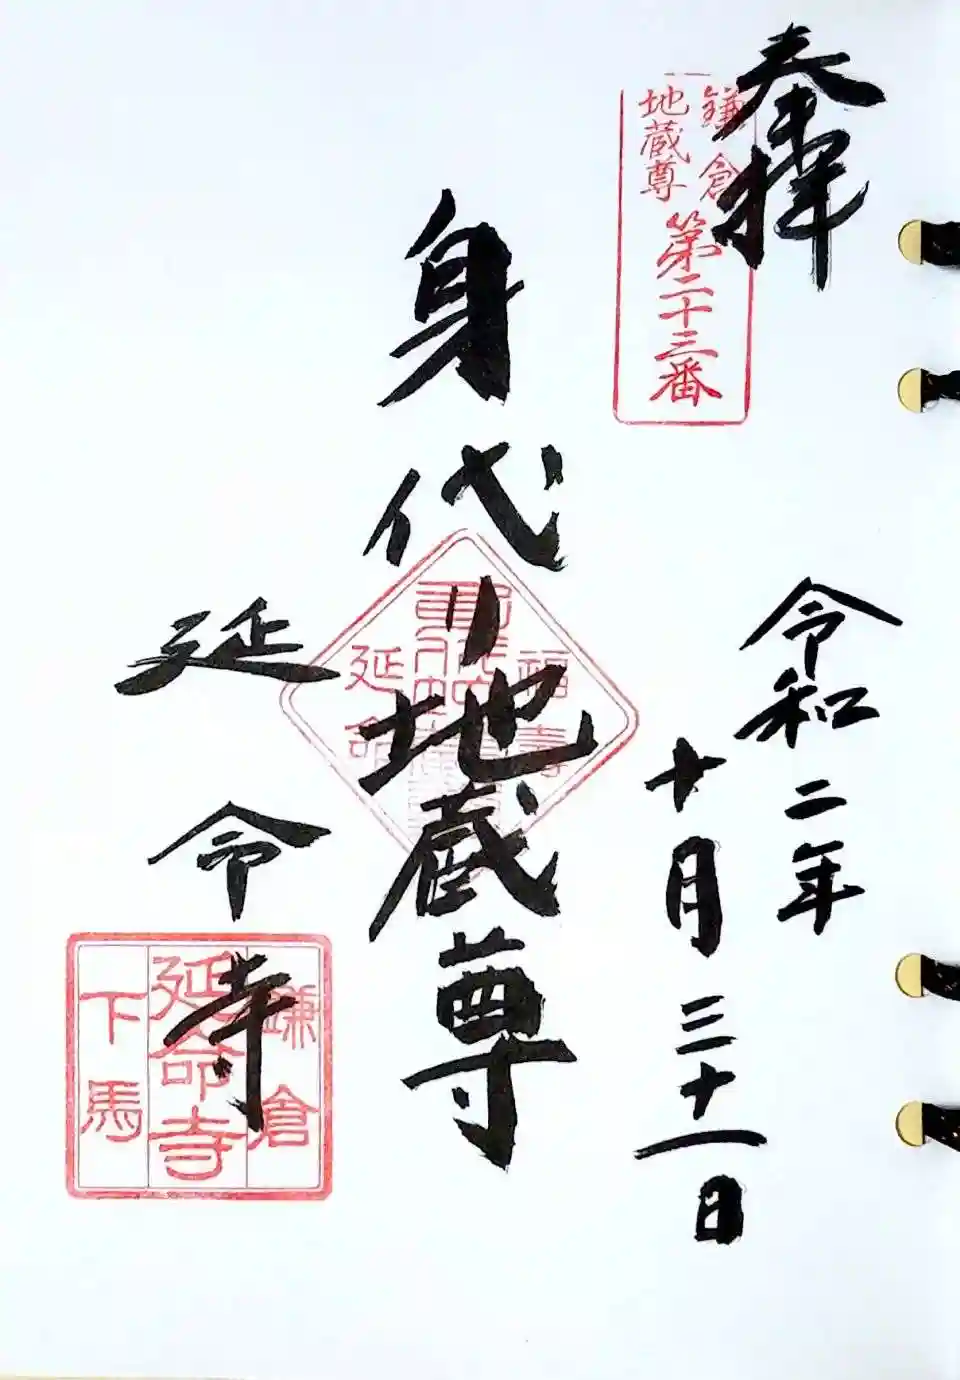 奉拝
鎌倉
地蔵尊
第二十三番
令和二年
十月三十一日
身代り地蔵尊
福寿
延命
延令寺
鎌倉
延命寺
下馬